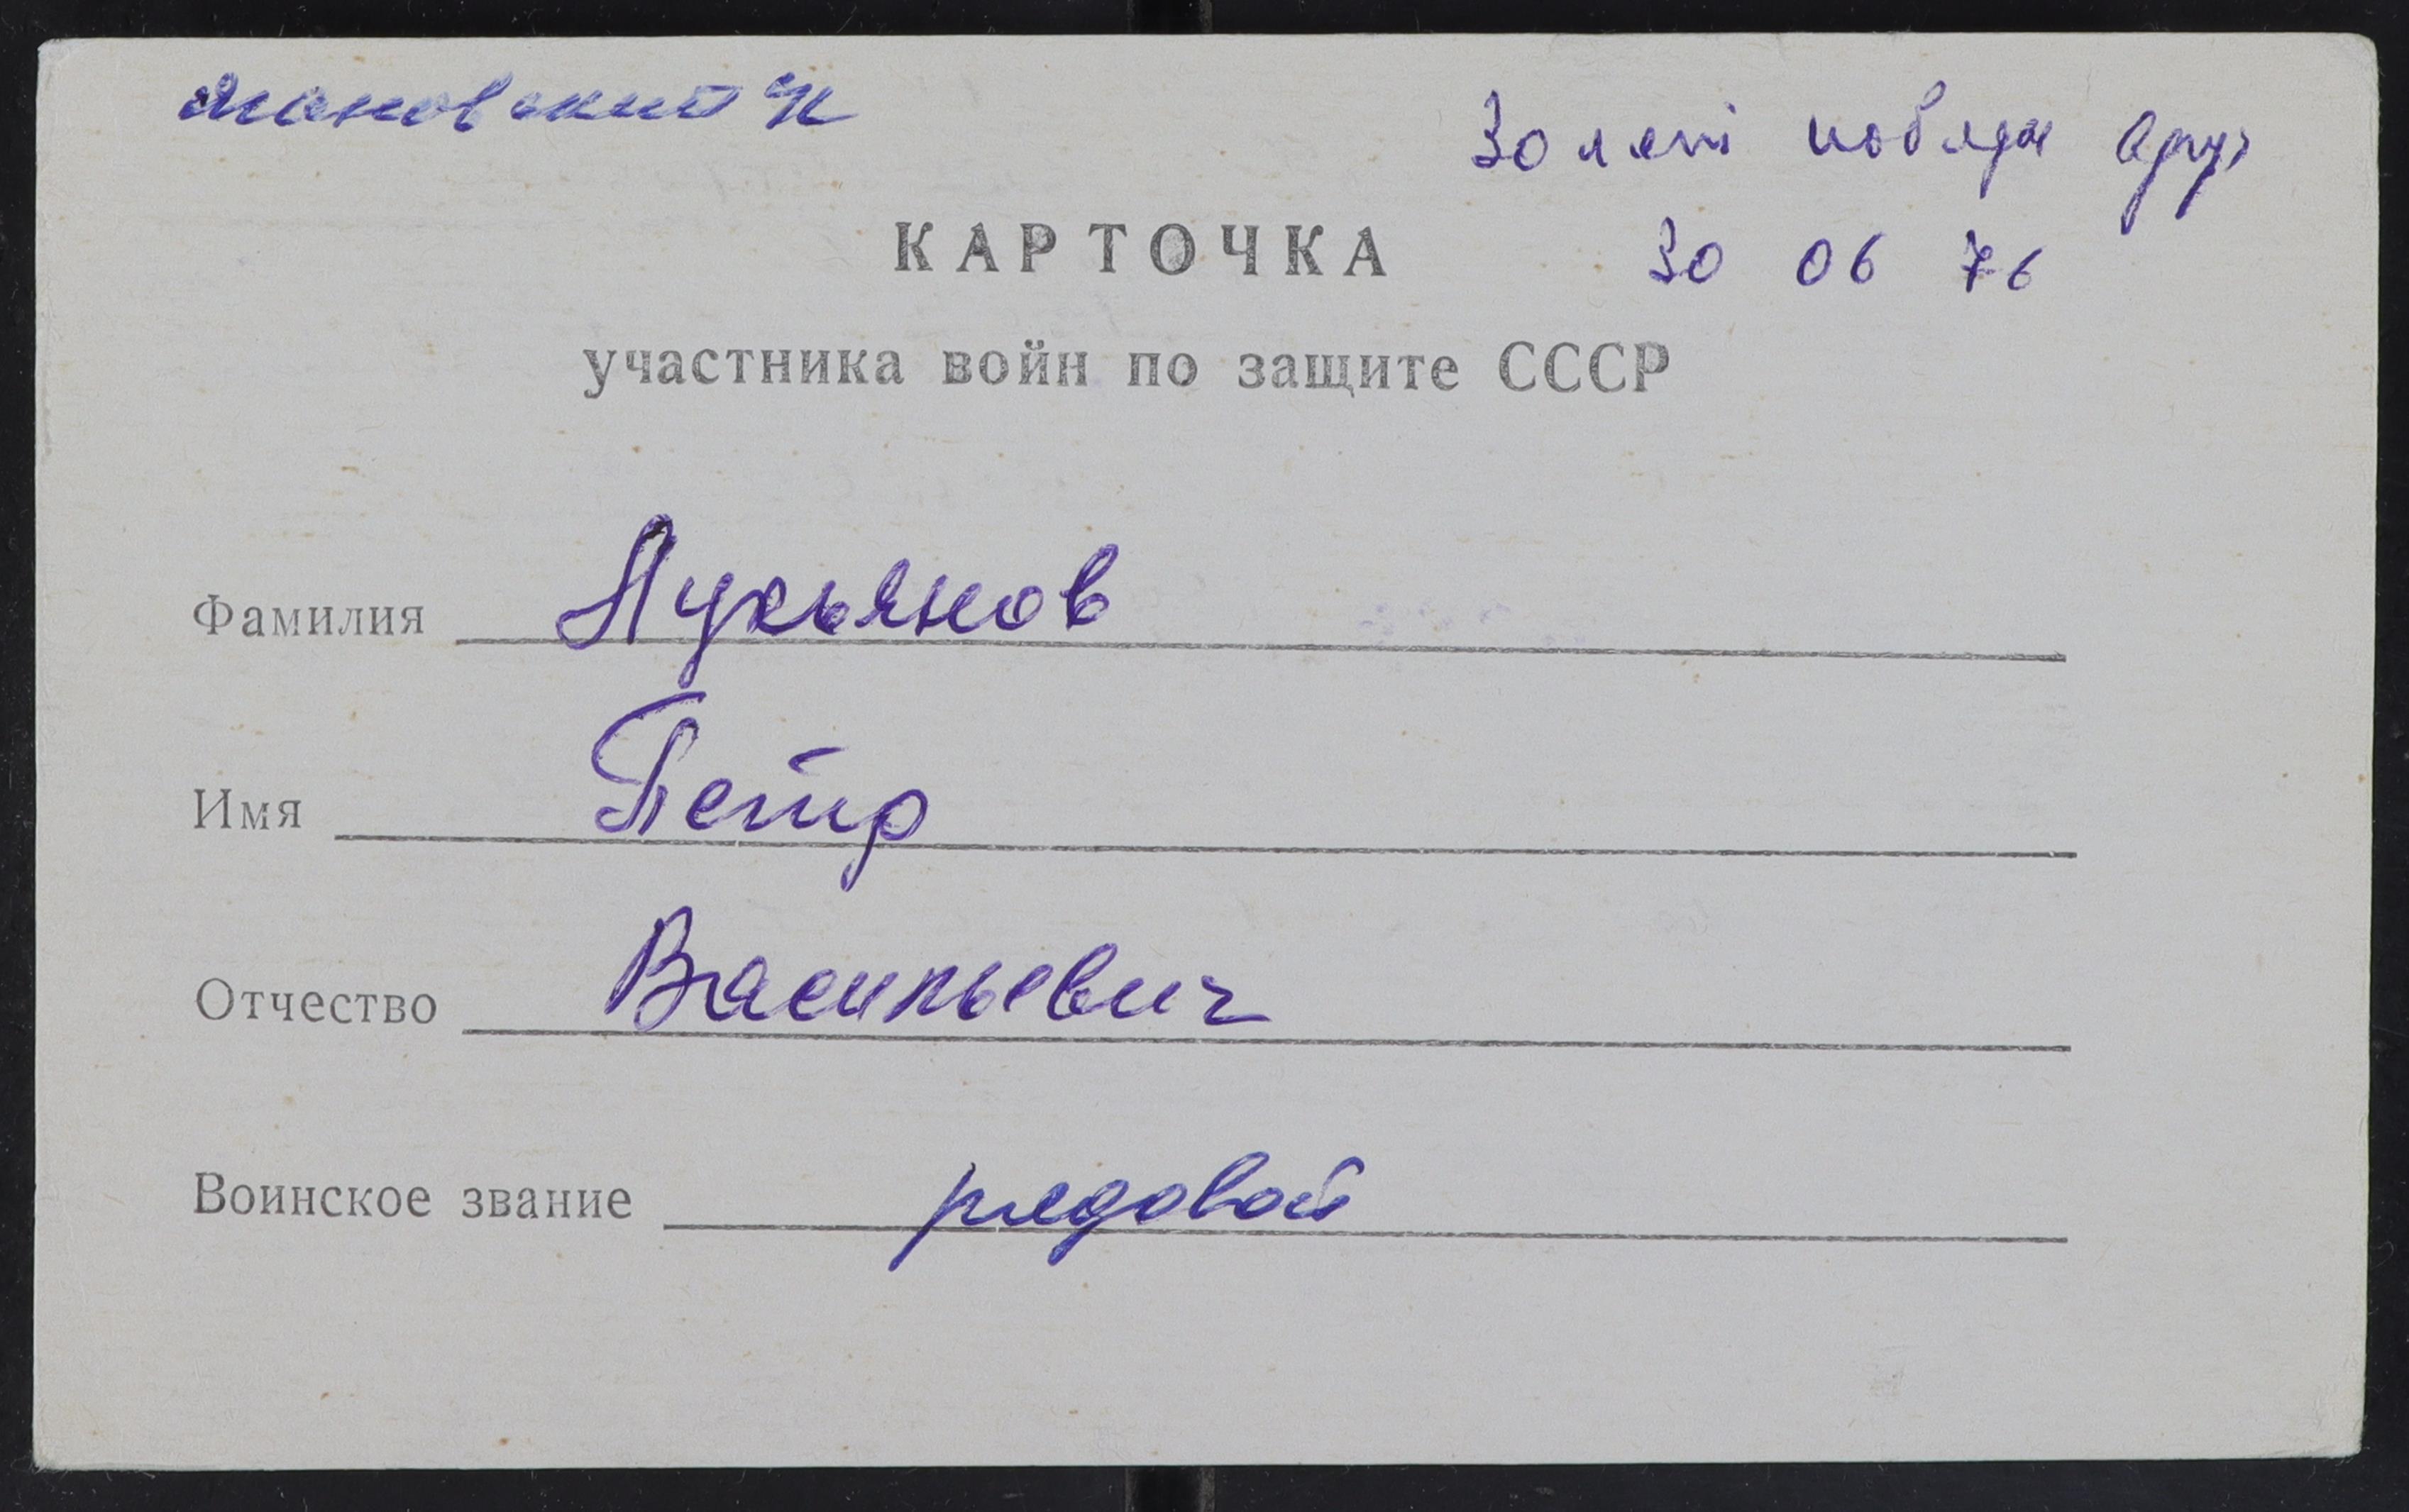 30 лет победы
КАРТОЧКА
30 06 76
участника войн по защите СССР
Фамилия Лукьянов
Имя Петр
Отчество Васильевич
Воинское звание рядовой